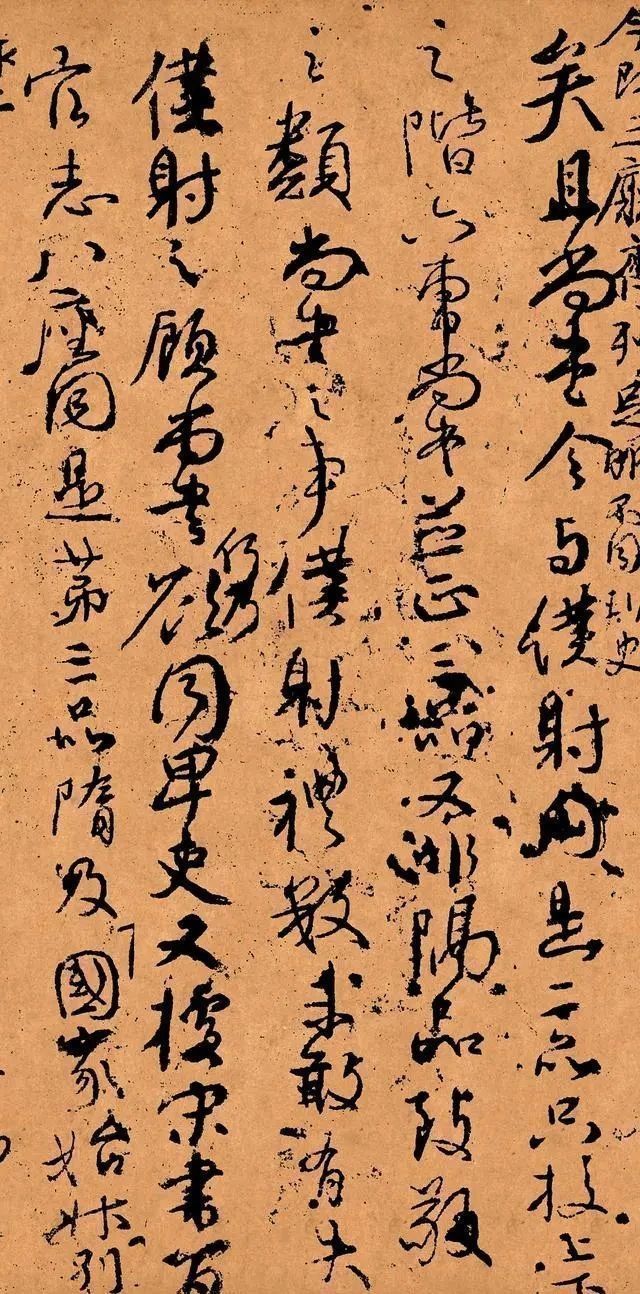 今既三廳齊列足明不同刺史
矣且尚書令與僕射同是二品只校上下
之階六曹尚書並正三品又非隔品致敬
之類尚書之事僕射禮數未敢有失
僕射之顧尚書何乃欲同卑吏又據宋書百
官志八座同是第三品隋及國家始升別